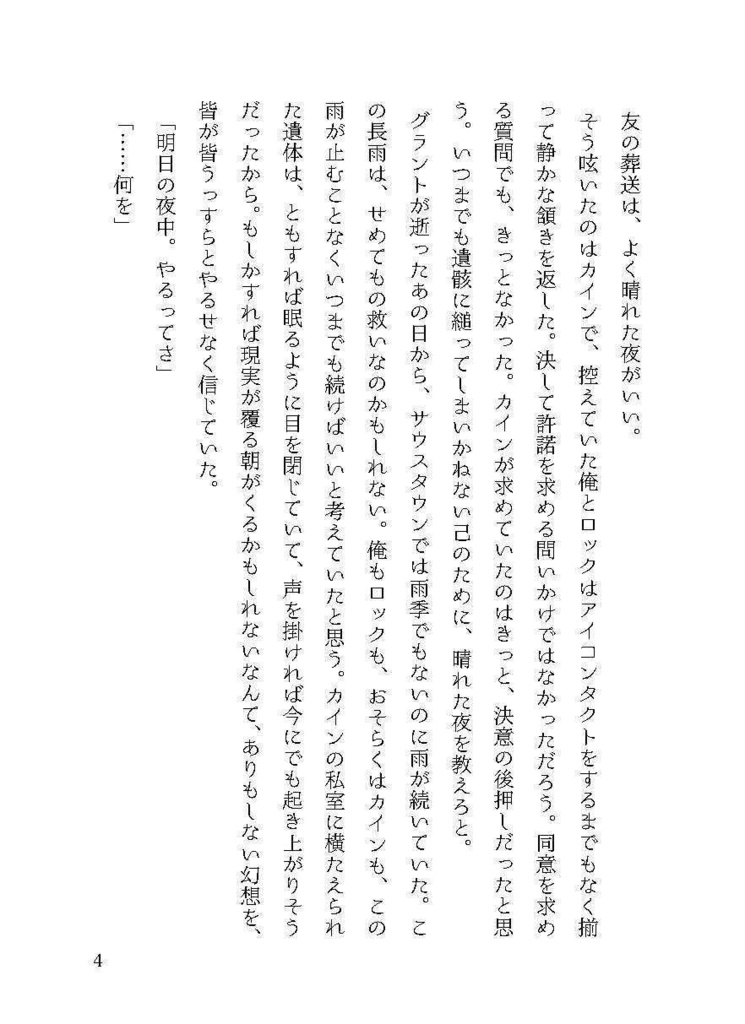 友の葬送は、よく晴れた夜がいい。
そう呟いたのはカインで、控えていた俺とロックはアイコンタクトをするまでもなく揃
って静かな頷きを返した。決して許諾を求める問いかけではなかっただろう。同意を求め
る質問でも、きっとなかった。カインが求めていたのはきっと、決意の後押しだったと思
う。いつまでも遺骸に縋ってしまいかねない己のために、晴れた夜を教えろと。
グラントが逝ったあの日から、サウスタウンでは雨季でもないのに雨が続いていた。こ
の長雨は、せめてもの救いなのかもしれない。俺もロックも、おそらくはカインも、この
雨が止むことなくいつまでも続けばいいと考えていたと思う。カインの私室に横たえられ
た遺体は、ともすれば眠るように目を閉じていて、声を掛ければ今にでも起き上がりそう
だったから。もしかすれば現実が覆る朝がくるかもしれないなんて、ありもしない幻想を、
皆が皆うっすらとやるせなく信じていた。
「明日の夜中。やるってさ」
「……何を」
4